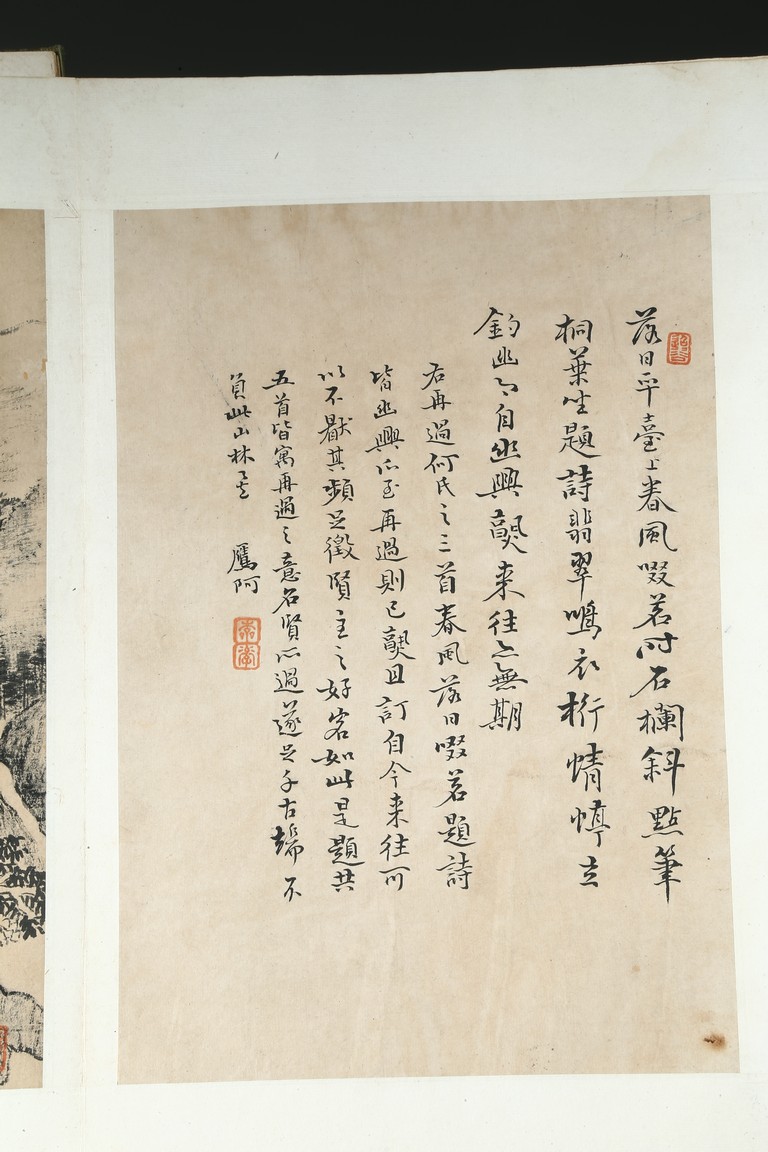 落日平臺上春風啜茗时石欄斜點筆
桐葉坐題詩翡翠鳴衣桁蜻蜓立
釣幽今自幽興熟来往亦無期
右再過何氏之三首春風落日啜茗題詩
皆幽興所至再過則已熟且訂自今来往可
以不厭其頻足徵賢主之好客如此是題共
五首皆寓再過之意名賢所過遂足千古端不
負此山林矣 鷹阿